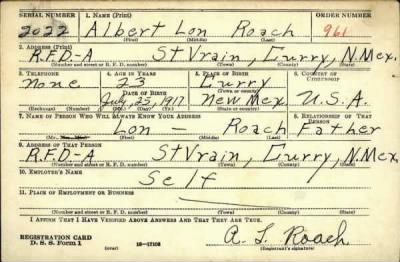 SERIAL NUMBER 1. NAME (Print) ORDER NUMBER
2022 Albert Lon Roach 961
(First) (Middle) (Last)
2. ADDRESS (Print)
R.F.D-A St Vrain, Curry, N.Mex.
(Number and street or R. F. D. number) (Town) (County) (State)
3. TELEPHONE 4. AGE IN YEARS 5. PLACE OF BIRTH 6. COUNTRY OF CITIZENSHIP
none 23 Curry
DATE OF BIRTH (Town or county)
July, 25, 1917 New Mex. U.S.A.
(Exchange) (Number) (Mo.) (Day) (Yr.) (State or country)
7. NAME OF PERSON WHO WILL ALWAYS KNOW YOUR ADDRESS 8. RELATIONSHIP OF THAT PERSON
Lon - Roach Father
(First) (Middle) (Last)
9. ADDRESS OF THAT PERSON
R.F.D-A St Vrain, Curry, N.Mex.
(Number and street or R. F. D. number) (Town) (County) (State)
10. EMPLOYER'S NAME
Self
11. PLACE OF EMPLOYMENT OR BUSINESS
(Number and street or R. F. D. number) (Town) (County) (State)
I AFFIRM THAT I HAVE VERIFIED ABOVE ANSWERS AND THAT THEY ARE TRUE.
REGISTRATION CARD
D. S. S. Form 1 (over) 16-17105 A. L. Roach
(Registrant's signature)